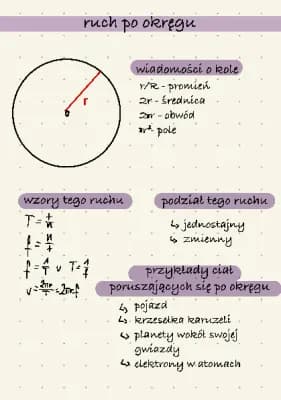 ruch po okręgu
r
wiadomości o kole
r/R - promień
2r - średnica
2πr - obwód
πr² - pole
wzory tego ruchu
T = t/n
f = n/t
f = 1/T ∨ T = 1/f
v = 2πr/T = 2πrf
podział tego ruchu
↳ jednostajny
↳ zmienny
przykłady ciał
poruszających się po okręgu
↳ pojazd
↳ krzesełka karuzeli
↳ planety wokół swojej
gwiazdy
↳ elektrony w atomach